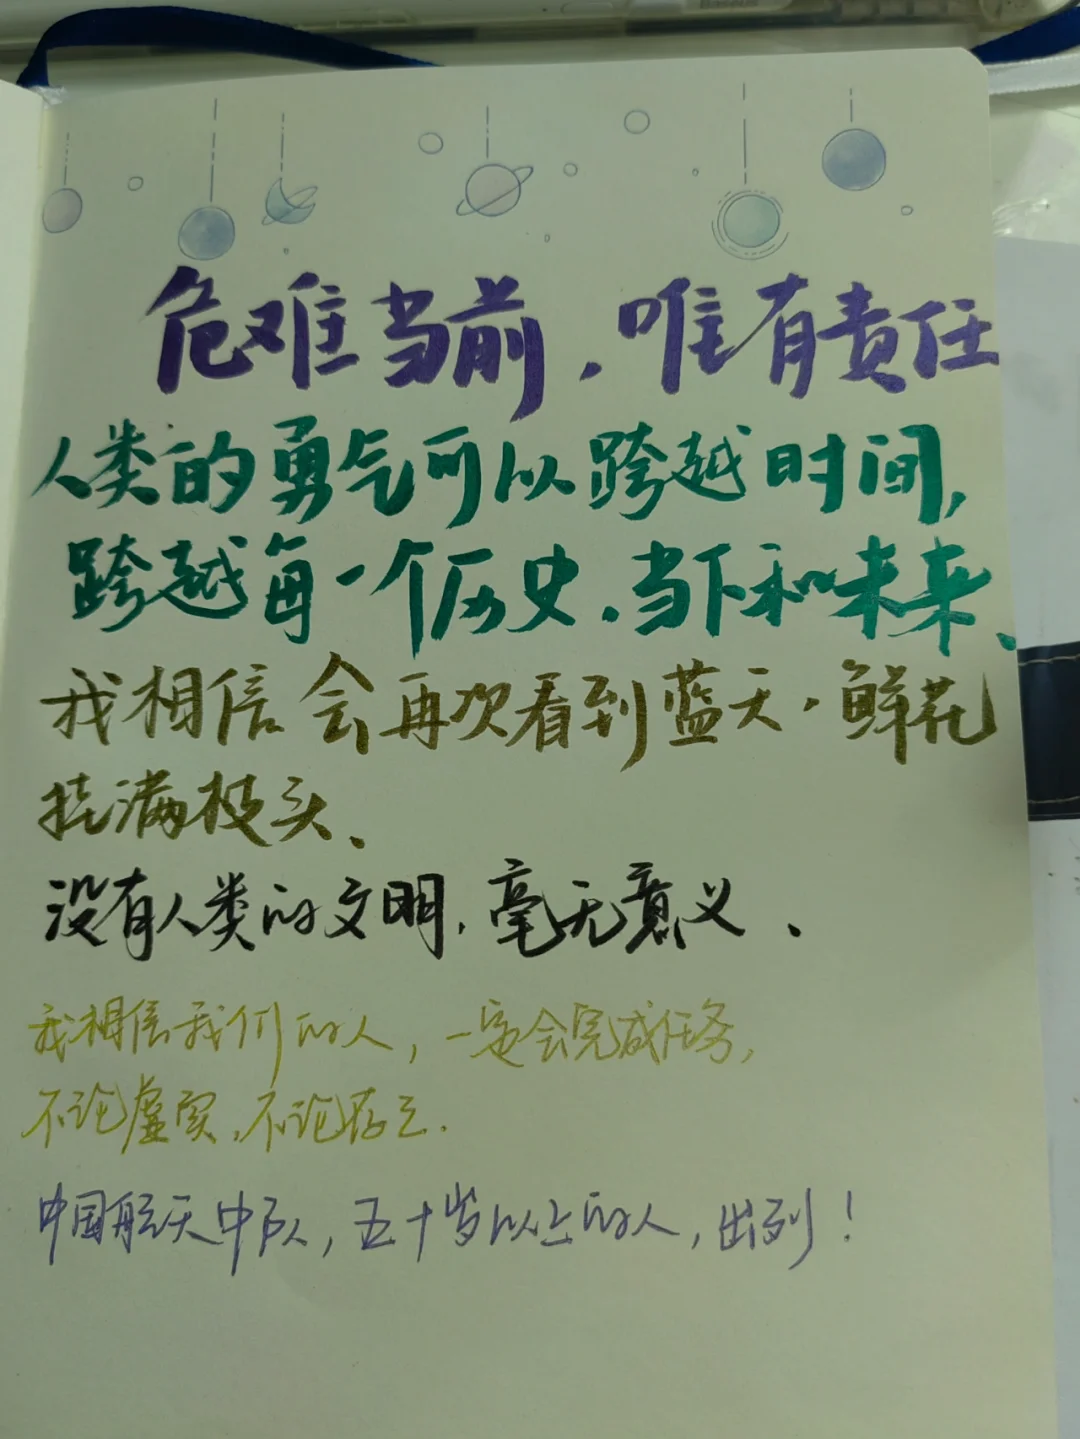 Baseus
危难当前，唯有责任
人类的勇气可以跨越时间，
跨越每一个历史．当下和未来、
我相信会再次看到蓝天，鲜花
挂满枝头、
没有人类的文明，毫无意义．
我相信我们的人，一定会完成任务，
不论虚实，不论存亡．
中国航天中队，五十岁以上的人，出列！